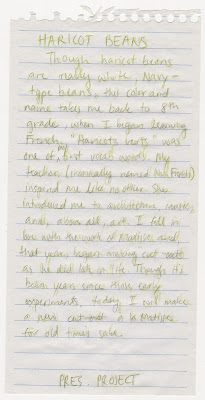 HARICOT BEANS
Though haricot beans
are really white, navy-
type beans, this color and
name takes me back to 8th
grade, when I began learning
French. "Haricots verts" was
one of my first vocab words. My
teacher (ironically named Mrs.
inspired me like no other. She
introduced me to architecture, music,
and, above all, art. I fell in
love with the work of Matisse and,
that year, began making cut outs
as he did late in life. Though it's
been years since those early
experiments, today I will make
a new cut out a la Matisse
for old times sake.
PRES. PROJECT